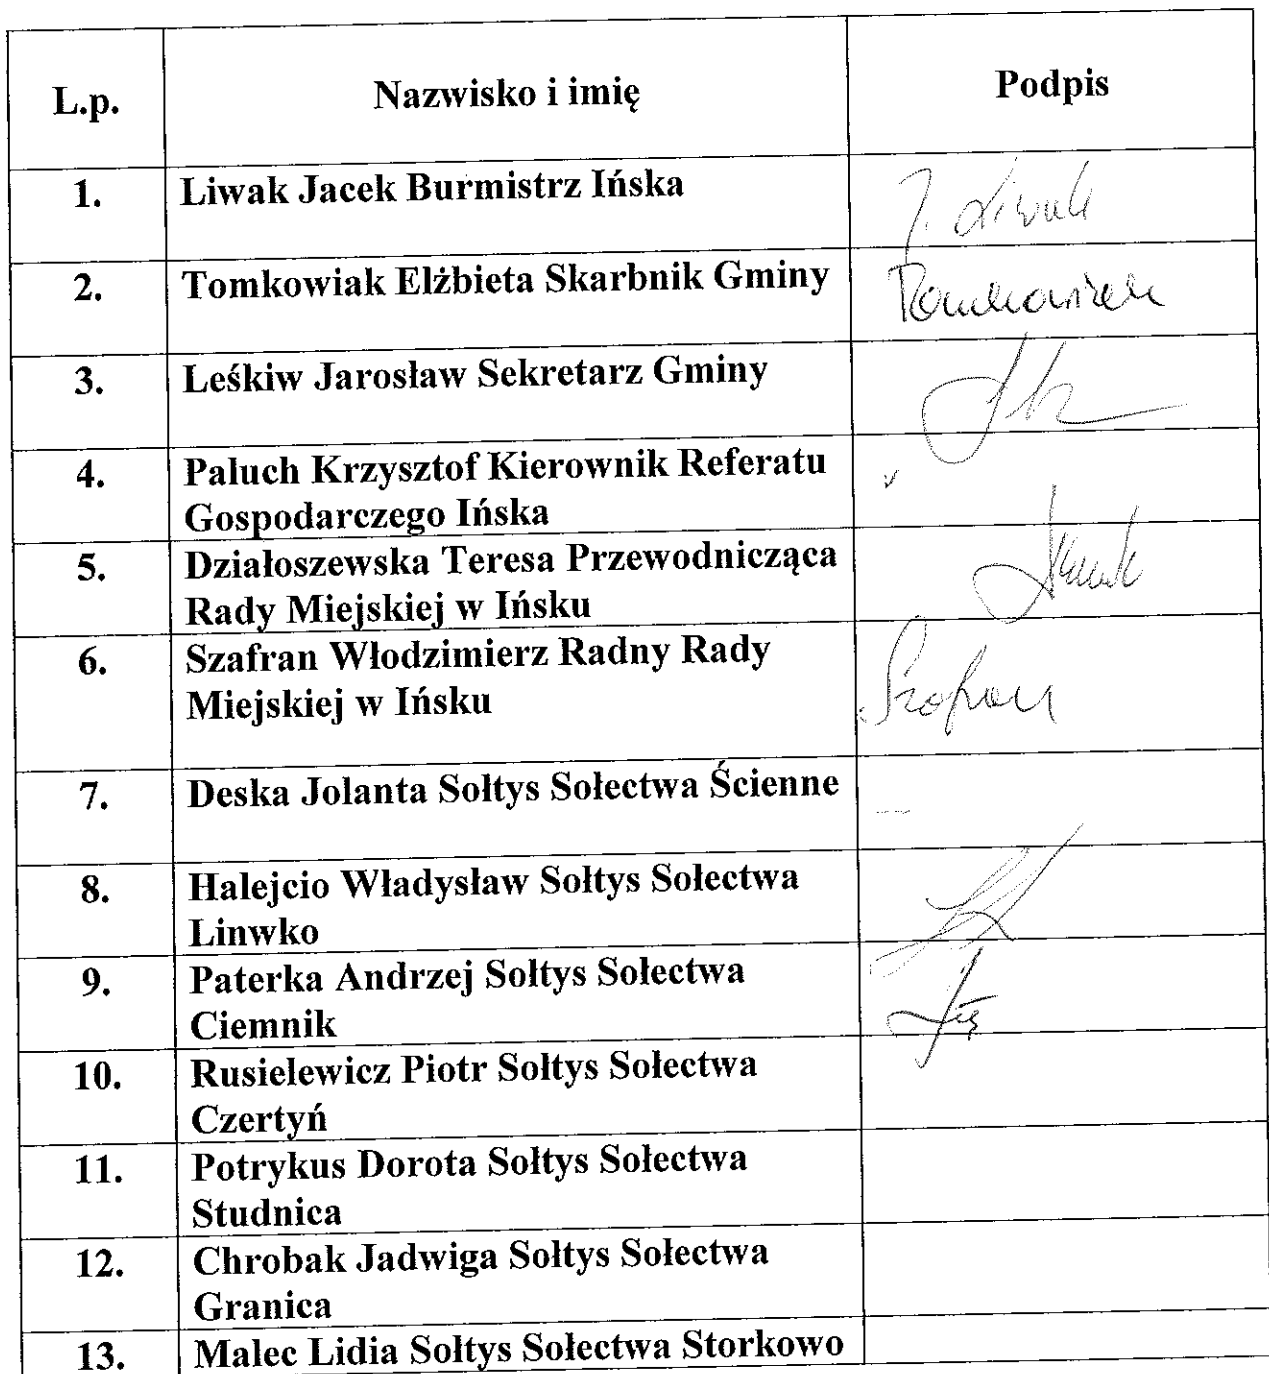 L.p. Nazwisko i imię Podpis
1. Liwak Jacek Burmistrz Ińska J. Liwak
2. Tomkowiak Elżbieta Skarbnik Gminy Tomkowiak
3. Leśkiw Jarosław Sekretarz Gminy
4. Paluch Krzysztof Kierownik Referatu
Gospodarczego Ińska
5. Działoszewska Teresa Przewodnicząca
Rady Miejskiej w Ińsku
6. Szafran Włodzimierz Radny Rady
Miejskiej w Ińsku Szafran
7. Deska Jolanta Sołtys Sołectwa Ścienne —
8. Halejcio Władysław Sołtys Sołectwa
Linwko
9. Paterka Andrzej Sołtys Sołectwa
Ciemnik
10. Rusielewicz Piotr Sołtys Sołectwa
Czertyń
11. Potrykus Dorota Sołtys Sołectwa
Studnica
12. Chrobak Jadwiga Sołtys Sołectwa
Granica
13. Malec Lidia Sołtys Sołectwa Storkowo